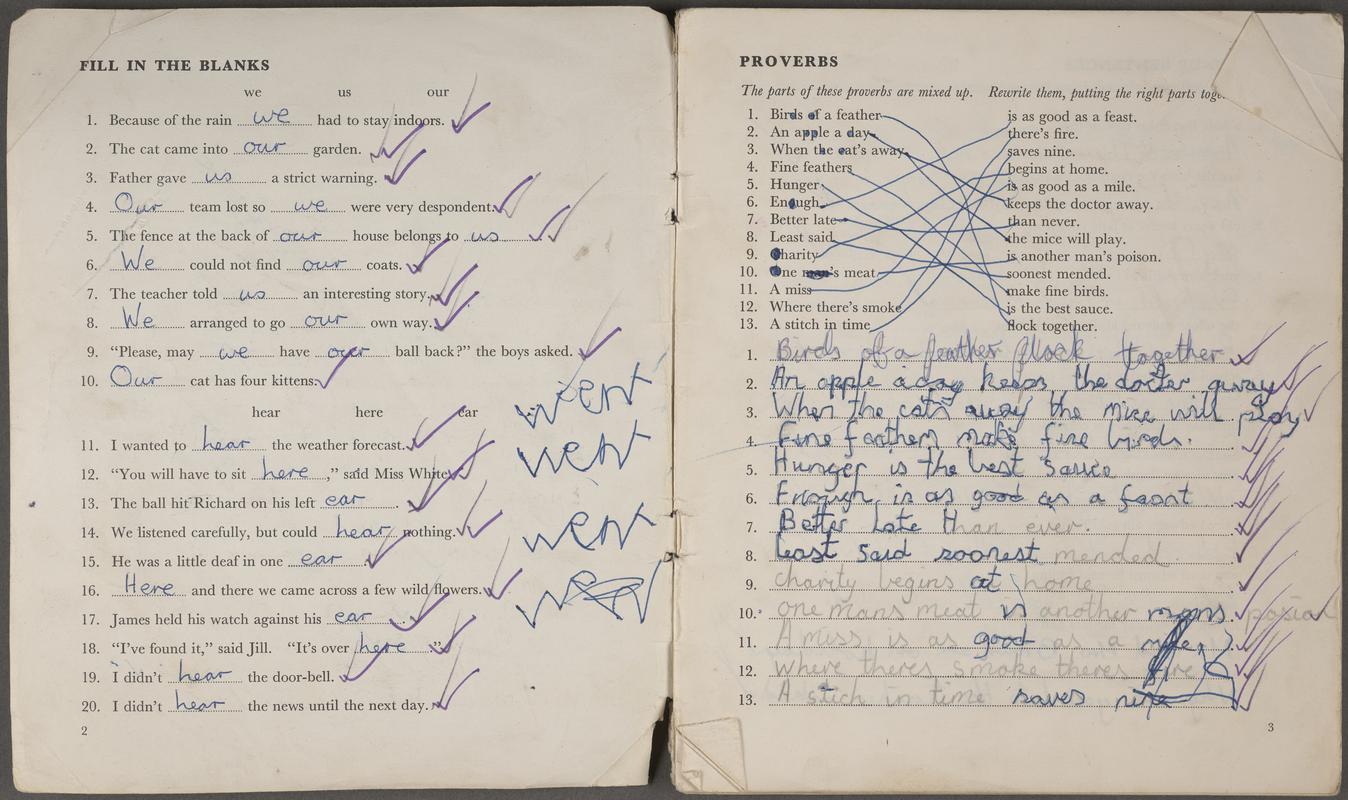 FILL IN THE BLANKS
we us our
1. Because of the rain we had to stay indoors.
2. The cat came into our garden.
3. Father gave us a strict warning.
4. Our team lost so we were very despondent.
5. The fence at the back of our house belongs to us
6. We could not find our coats.
7. The teacher told us an interesting story.
8. We arranged to go our own way.
9. “Please, may we have our ball back?” the boys asked.
10. Our cat has four kittens.
hear here ear
11. I wanted to hear the weather forecast.
12. “You will have to sit here,” said Miss White.
13. The ball hit Richard on his left ear.
14. We listened carefully, but could hear nothing.
15. He was a little deaf in one ear.
16. Here and there we came across a few wild flowers.
17. James held his watch against his ear.
18. “I’ve found it,” said Jill. “It’s over here.”
19. I didn’t hear the door-bell.
20. I didn’t hear the news until the next day.
went
went
went
2
PROVERBS
The parts of these proverbs are mixed up. Rewrite them, putting the right parts toge
1. Birds of a feather is as good as a feast.
2. An apple a day there’s fire.
3. When the cat’s away saves nine.
4. Fine feathers begins at home.
5. Hunger is as good as a mile.
6. Enough keeps the doctor away.
7. Better late than never.
8. Least said the mice will play.
9. Charity is another man’s poison.
10. One man’s meat soonest mended.
11. A miss make fine birds.
12. Where there’s smoke is the best sauce.
13. A stitch in time flock together.
1. Birds of a feather flock together
2. An apple a day keeps the docter away
3. When the cats away the mice will play
4. Fine feathers make fine birds.
5. Hunger is the best sauce
6. Enough is as good as a feast
7. Better late than ever.
8. least said soonest mended
9. charity begins at home
10. one mans meat is another mans
11. A miss is as good as a
12. where theres smoke theres fire
13. A stich in time saves nine
3